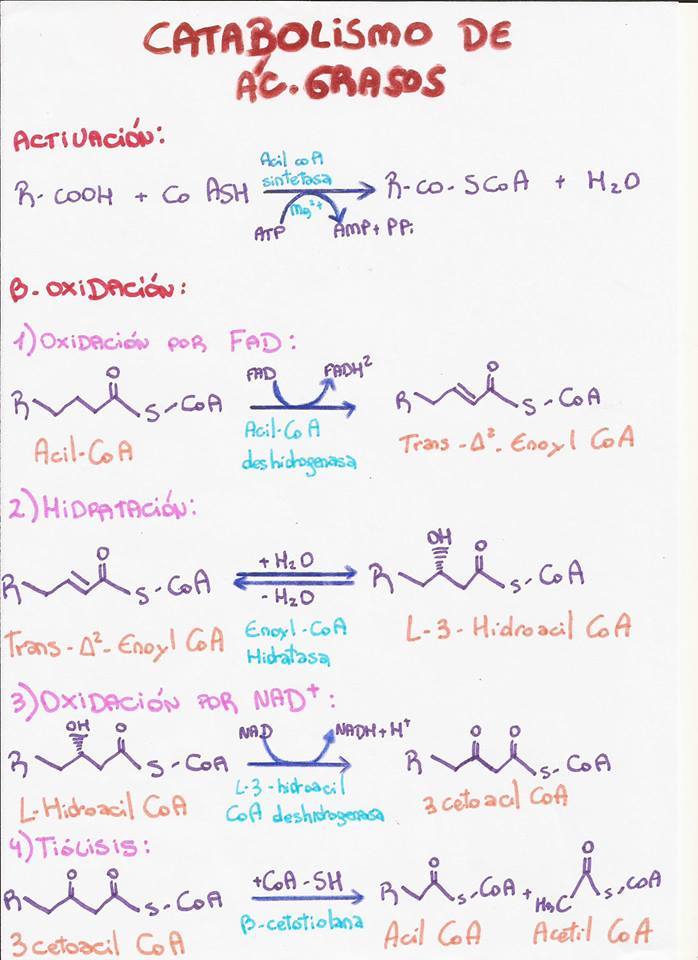 CATABOLISMO DE
ÁC. GRASOS
ACTIVACIÓN:
Acil coA
sintetasa
R-COOH + Co ASH
R-CO-SCoA + H2O
Mg2+
ATP
AMP + PPi
β-OXIDACIÓN:
1) OXIDACIÓN POR FAD:
O
R
S-CoA
FAD
FADH2
O
R
S-CoA
Acil-CoA
Acil-CoA
deshidrogenasa
Trans-Δ2-Enoyl CoA
2) HIDRATACIÓN:
O
R
S-CoA
+ H2O
- H2O
OH
O
R
S-CoA
Trans-Δ2-Enoyl CoA
Enoyl-CoA
Hidratasa
L-3-Hidroacil CoA
3) OXIDACIÓN POR NAD+:
OH
O
R
S-CoA
NAD
NADH + H+
O
O
R
S-CoA
L-Hidroacil CoA
L-3-hidroacil
CoA deshidrogenasa
3 cetoacil CoA
4) TIÓLISIS:
O
O
R
S-CoA
+CoA-SH
O
R
S-CoA
+
O
H3C
S-COA
3 cetoacil CoA
β-cetotiolana
Acil CoA
Acetil CoA